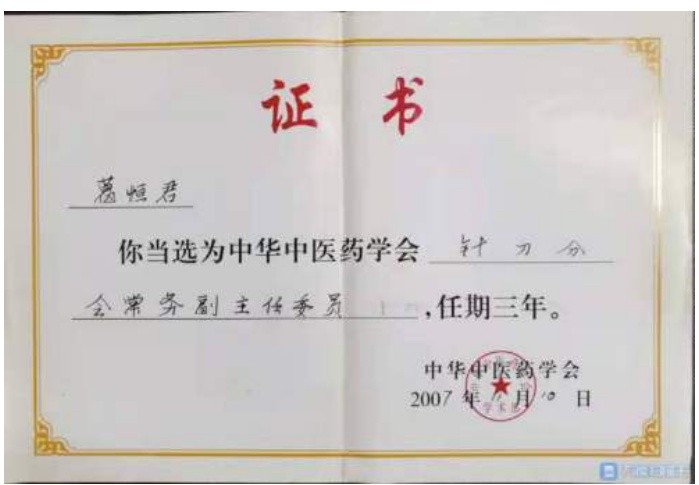 证书
葛恒君
你当选为中华中医药学会 针刀分
会常务副主任委员,任期三年。
中华中医药学会
2007年11月10日